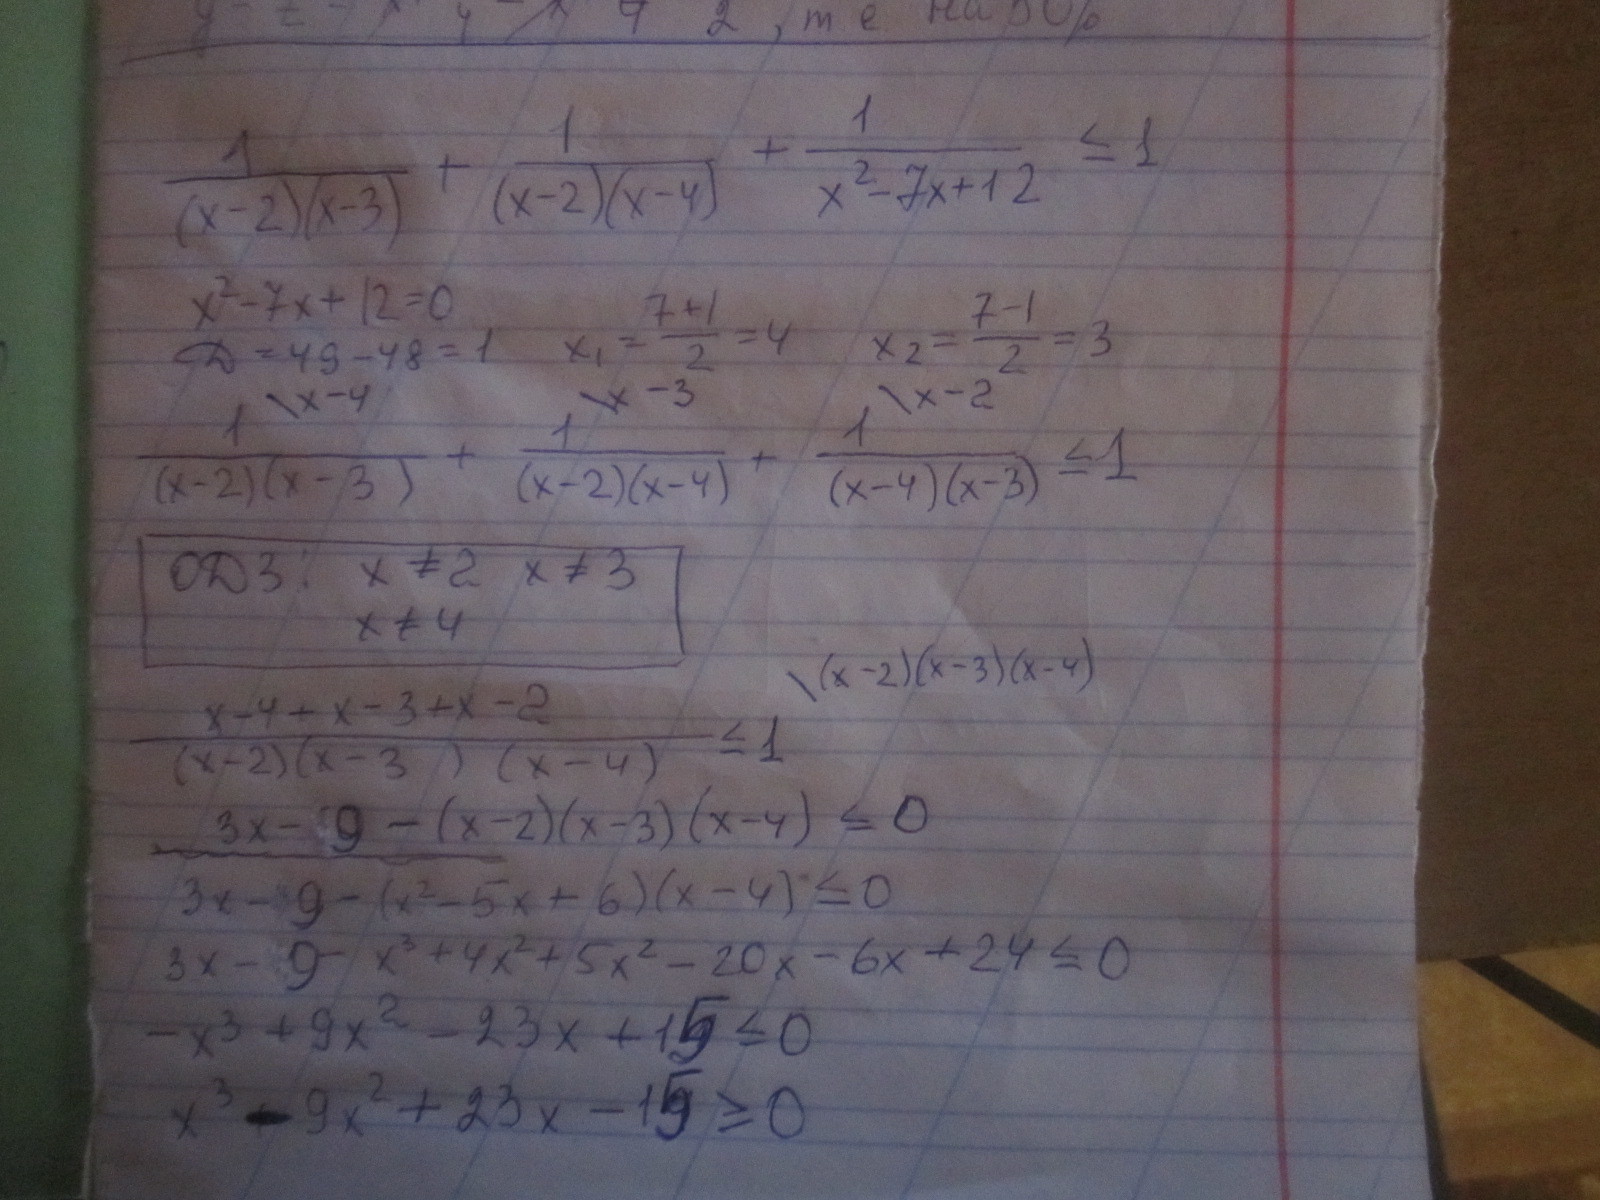 , т е на 50%
1/((x-2)(x-3)) + 1/((x-2)(x-4)) + 1/(x²-7x+12) ≤ 1
x²-7x+12=0
D=49-48=1 x₁=(7+1)/2=4 x₂=(7-1)/2=3
\x-4 \x-3 \x-2
1/((x-2)(x-3)) + 1/((x-2)(x-4)) + 1/((x-4)(x-3)) ≤1
ОДЗ: x≠2 x≠3
x≠4
\(x-2)(x-3)(x-4)
(x-4+x-3+x-2)/((x-2)(x-3)(x-4)) ≤1
3x-9-(x-2)(x-3)(x-4) ≤ 0
3x-9-(x²-5x+6)(x-4) ≤0
3x-9-x³+4x²+5x²-20x-6x+24≤0
-x³+9x²-23x+15≤0
x³-9x²+23x-15≥0